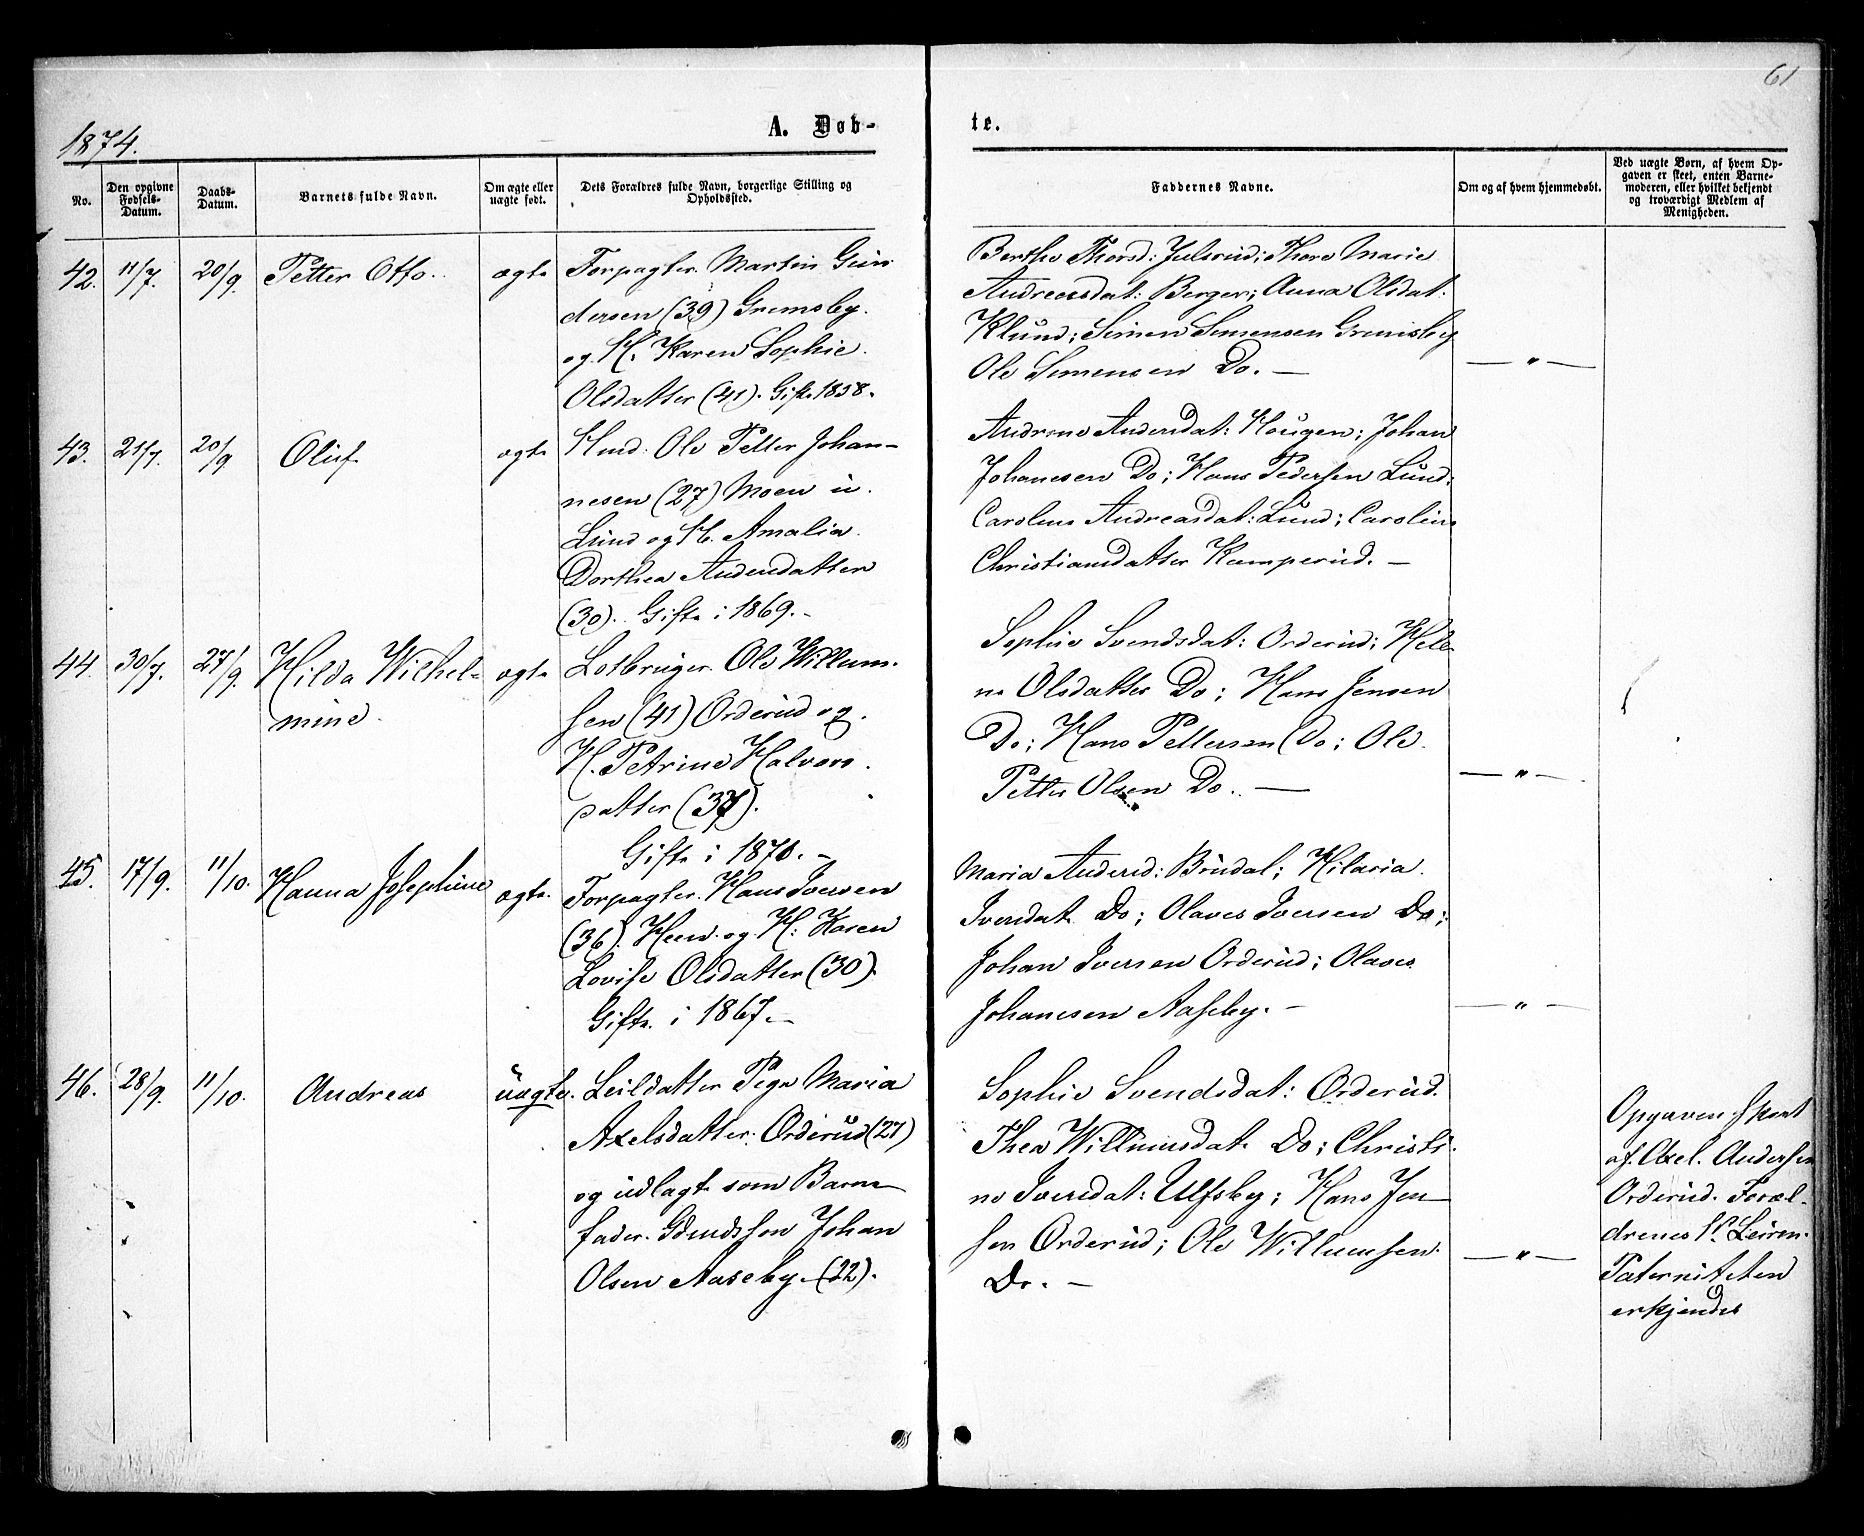 61
1874.
A. Døb-
te.
No.
Den opgivne Fødsels-Datum.
Daabs-Datum.
Barnets fulde Navn.
Om ægte eller uægte født.
Dets Forældres fulde Navn, borgerlige Stilling og Opholdssted.
Faddernes Navne.
Om og af hvem hjemmedøbt.
Ved uægte Børn, af hvem Op-
gaven er skeet, enten Barne-
moderen, eller hvilket bekjendt
og troværdigt Medlem af
Menigheden.
42. 11/7. 20/9. Petter Otto. ægte
Forpagter Martin Gun
dersen (39) Gremsby.
og H. Karen Sophie
Olsdatter (41). Gifte 1858.
Berthe Thorsd: Julsrud; Thore Marie
Andreasdat: Berger; Anna Olsdat:
Klund; Simen Simensen Gremsby
Ole Simensen Do. —
— " —
43. 21/7. 20/9 Oluf ægte
Hmd: Ole Petter Johan-
nesen (27) Moen u.
Lund og H. Amalia
Dorthea Andersdatter
(30). Gifte i 1869. -
Andrene Andersdat: Hougen; Johan
Johanesen Do; Hans Pedersen Lund;
Caroline Andreasdat: Lund; Caroline
Christiansdatter Kamperud. —
44. 30/7. 27/9. Hilda Wilhel-
mine. ægte
Lotbruger Ole Willum-
sen (41) Orderud og
H. Petrine Halvors
datter (37).
Gifte i 1870. -
Sophie Svendsdat: Orderud; Hele-
ne Olsdatter Do; Hans Jensen
Do; Hans Pettersen Do; Ole
Petter Olsen Do. —
— " —
45. 17/9. 11/10. Hanna Josephine ægte.
Forpagter Hans Iversen
(36). Heen og H: Karen
Lovise Olsdatter (30).
Gifte i 1867. -
Maria Andersd: Brudal; Hilaria
Iversdat Do; Olaves Iversen Do;
Johan Iversen Orderud; Olaves
Johanesen Aaseby. -
— " —
46. 28/9. 11/10. Andreas uægte.
Leildatter Pige Maria
Axelsdatter Orderud (21)
og udlagt som Barne
fader Gdmdssøn Johan
Olsen Aaseby (22).
Sophie Svendsdat: Orderud.
Thea Willumsdat Do; Christi
ne Iversdat: Ulfsby; Hans Jen
sen Orderud; Ole Willumsen
Do. —
— " —
Opgaven skeet
af Axel Andersen
Orderud. Foræl-
drenes
Paterniteten
erkjendes